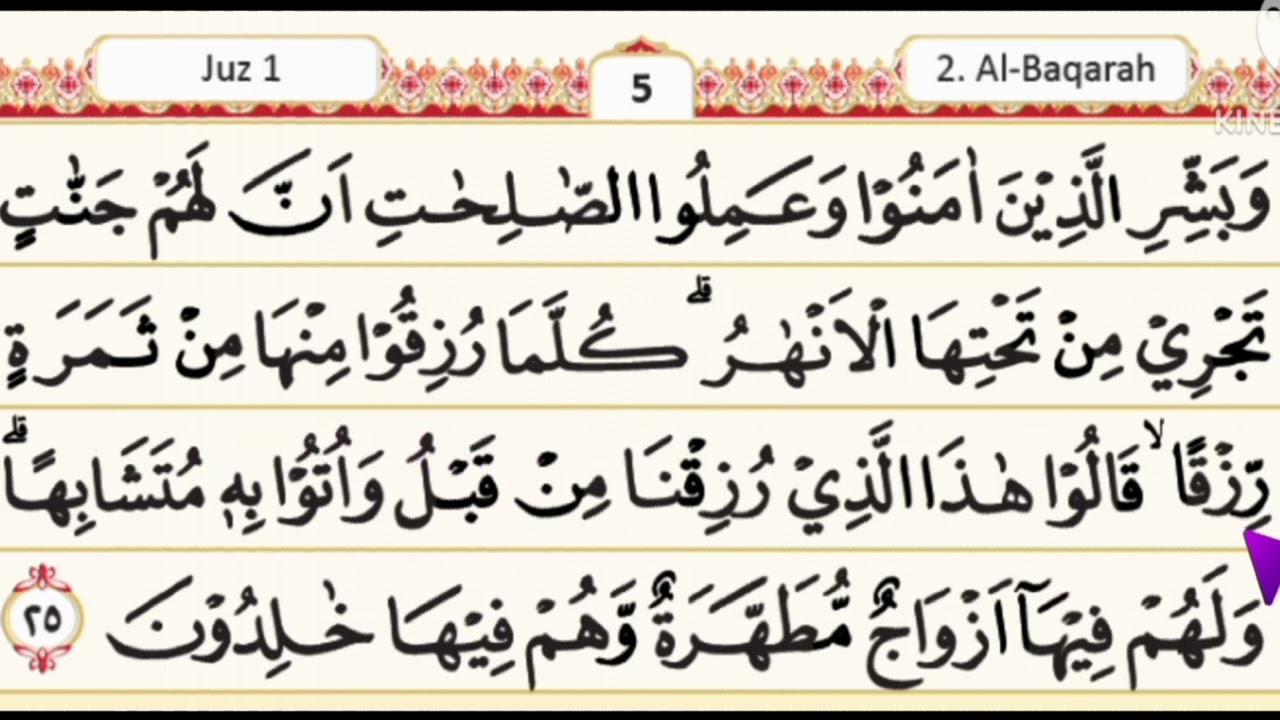 Juz 1
5
2. Al-Baqarah
KINE
وَبَشِّرِ الَّذِيْنَ اٰمَنُوْا وَعَمِلُوا الصّٰلِحٰتِ اَنَّ لَهُمْ جَنّٰتٍ
تَجْرِيْ مِنْ تَحْتِهَا الْاَنْهٰرُ ۗ كُلَّمَا رُزِقُوْا مِنْهَا مِنْ ثَمَرَةٍ
رِّزْقًا ۙ قَالُوْا هٰذَا الَّذِيْ رُزِقْنَا مِنْ قَبْلُ وَاُتُوْا بِهٖ مُتَشَابِهًا ۗ
وَلَهُمْ فِيْهَآ اَزْوَاجٌ مُّطَهَّرَةٌ وَّهُمْ فِيْهَا خٰلِدُوْنَ ٢٥